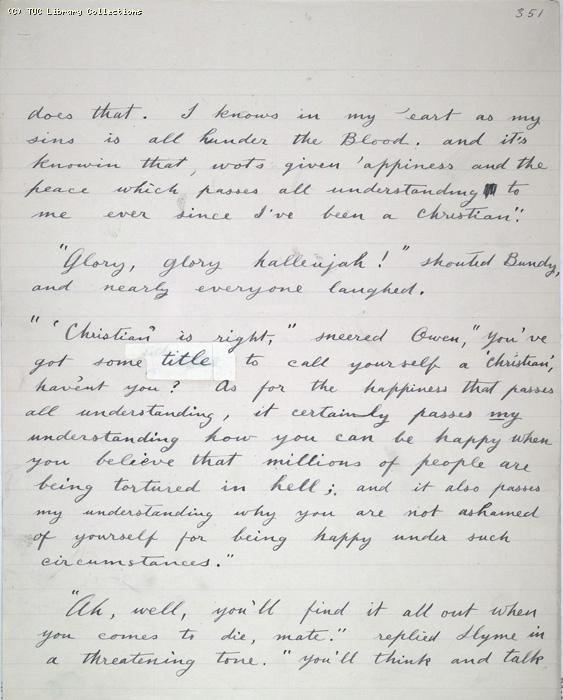 (C) TUC Library Collections
351
does that. I knows in my 'eart as my
sins is all hunder the Blood. and it's
knowin that, wots given 'appiness and the
peace which passes all understanding to
me ever since I've been a Christian".
"Glory, glory hallelujah!" shouted Bundy,
and nearly everyone laughed.
" 'Christian' is right," sneered Owen, "you've
got some title to call yourself a 'Christian',
havent you? As for the happiness that passes
all understanding, it certainly passes my
understanding how you can be happy when
you believe that millions of people are
being tortured in hell; and it also passes
my understanding why you are not ashamed
of yourself for being happy under such
circumstances."
"Ah, well, you'll find it all out when
you comes to die, mate." replied Slyme in
a threatening tone. "you'll think and talk